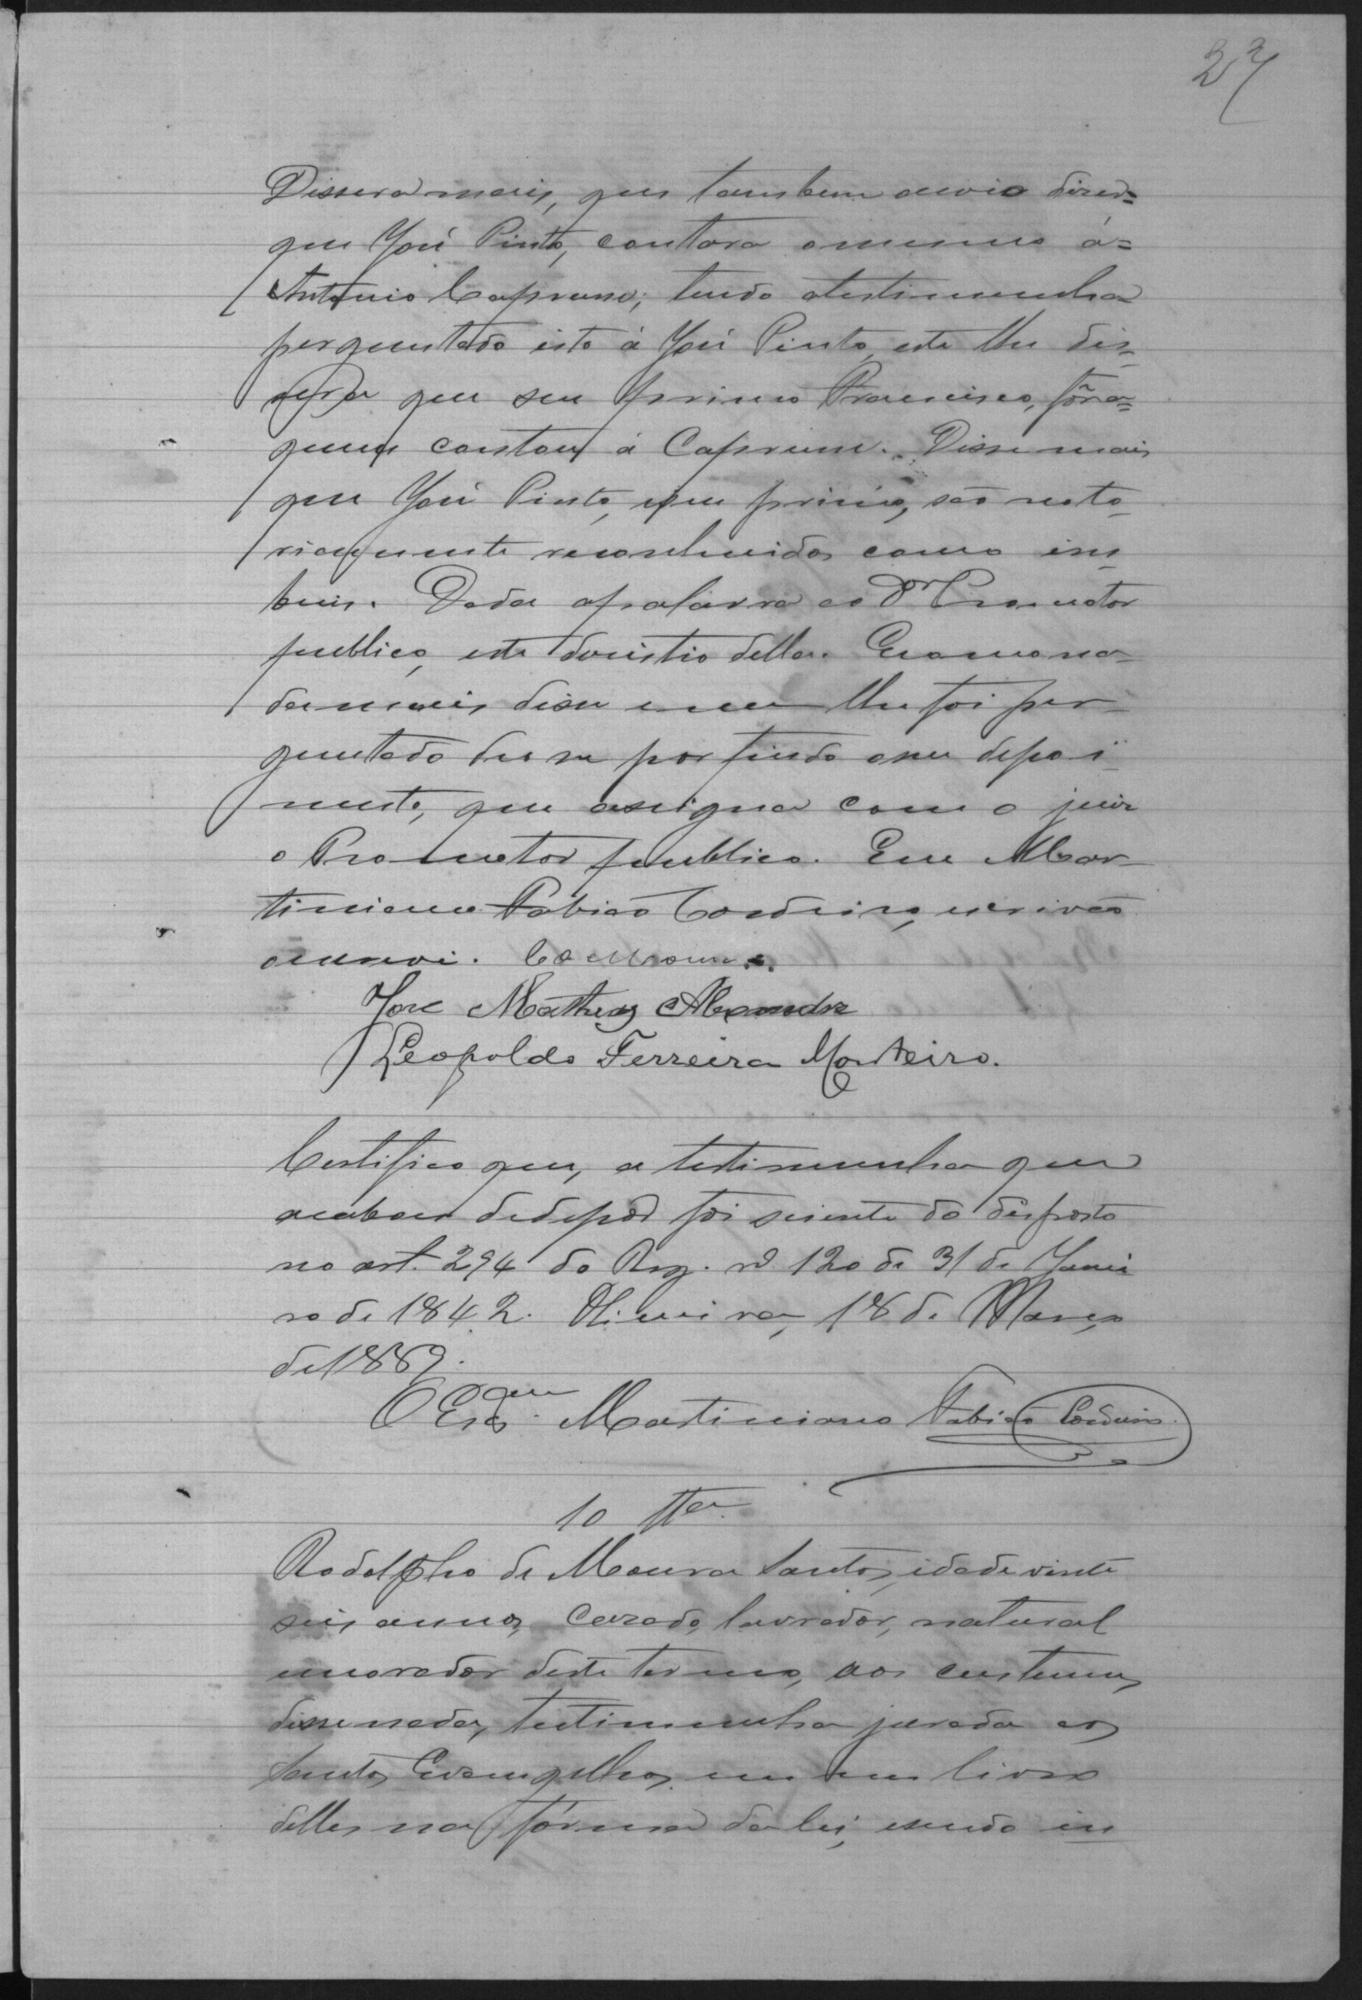 27
Dissera mais, que tambem ouvio dizer=
que José Pinto, contara o mesmo á=
Antonio Caprune; tendo a testimunha
perguntado isto á José Pinto, este lhe dis-
sera que seu primo Francisco, fôra=
quem contou á Caprune. Disse mais
que José Pinto, e seu primo, são noto-
riamente reconhecidos como
Dada a palavra ao Dr Promotor
publico, este desistio della. E como na-
da mais disse e nem lhe foi per-
guntado deu se por findo o seu depoi-
mento, que assigna com o juiz
o Promotor publico. Eu Mar-
timiano Fabião Cordeiro, escrivão
escrevi.
José Matheus Alexandre
Leopoldo Ferreira Monteiro.
Certifico que, a testimunha que
acabou de depôr foi sciente do disposto
no art. 294 do Reg. nº 120 de 31 de Janei
ro de 1842. Oliveira, 18 de Março
de 1889.
O Escam. Martimiano Fabião Cordeiro.
10 Tta.
Rodolpho de Moura Santos, idade vinte
seis annos, cazado, lavrador, natural
morador deste termo, aos custumes
disse nada, testimunha jurada aos
Santos Evangelhos em um livro
delles na fórma da lei, e sendo in